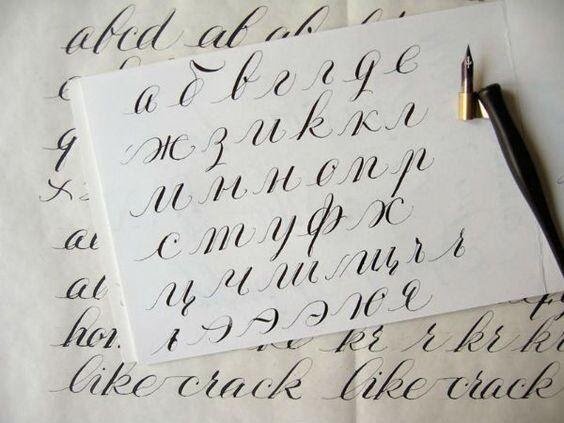 abcd ab ab
а б в г г д е
ж з и к к л
м н н о п р
с т у ф х
ц ч ш щ ъ ъ
ь э э э ю я
kr r kr kr
like crack like crack